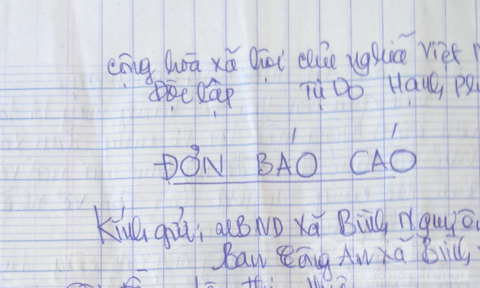 cộng hòa xã hội chủ nghĩa Việt
Độc lập Tự Do Hạnh
ĐƠN BÁO CÁO
Kính gửi: UBND xã Bình Nguyên
Ban Công An xã Bình